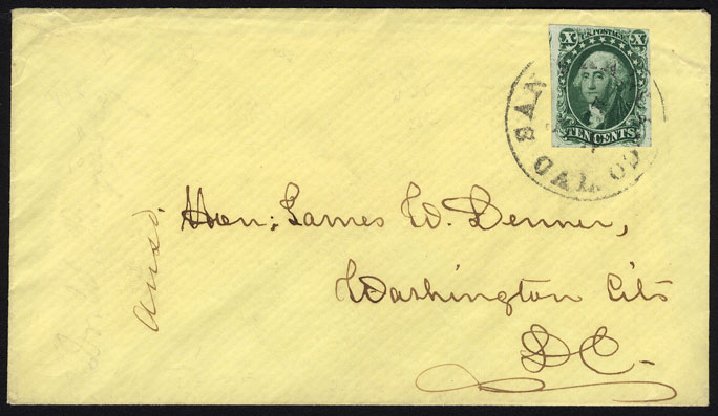 X U.S. POSTAGE X
TEN CENTS
SAN
CAL
Hon: James W. Denver,
Washington City
D.C.
ansd.